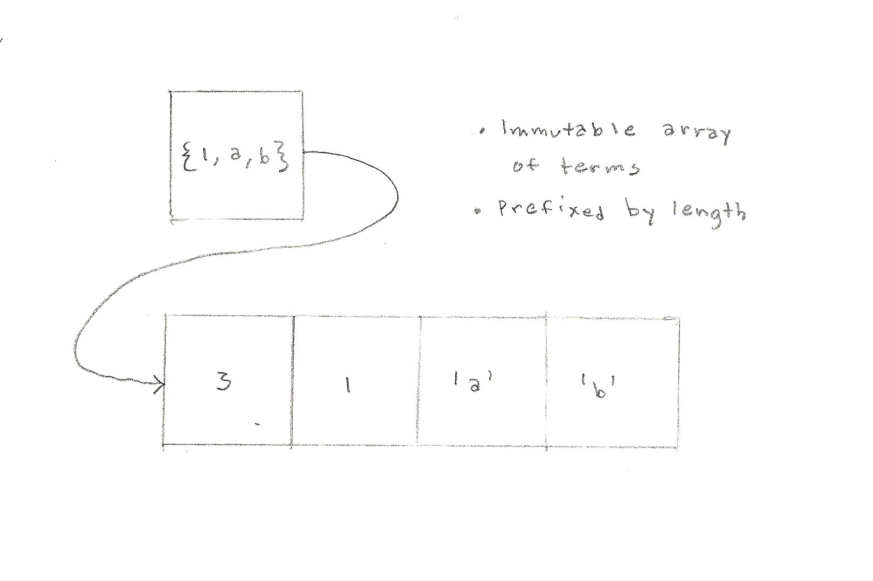 {1, a, b}
• Immutable array
of terms
• Prefixed by length
3 1 'a' 'b'